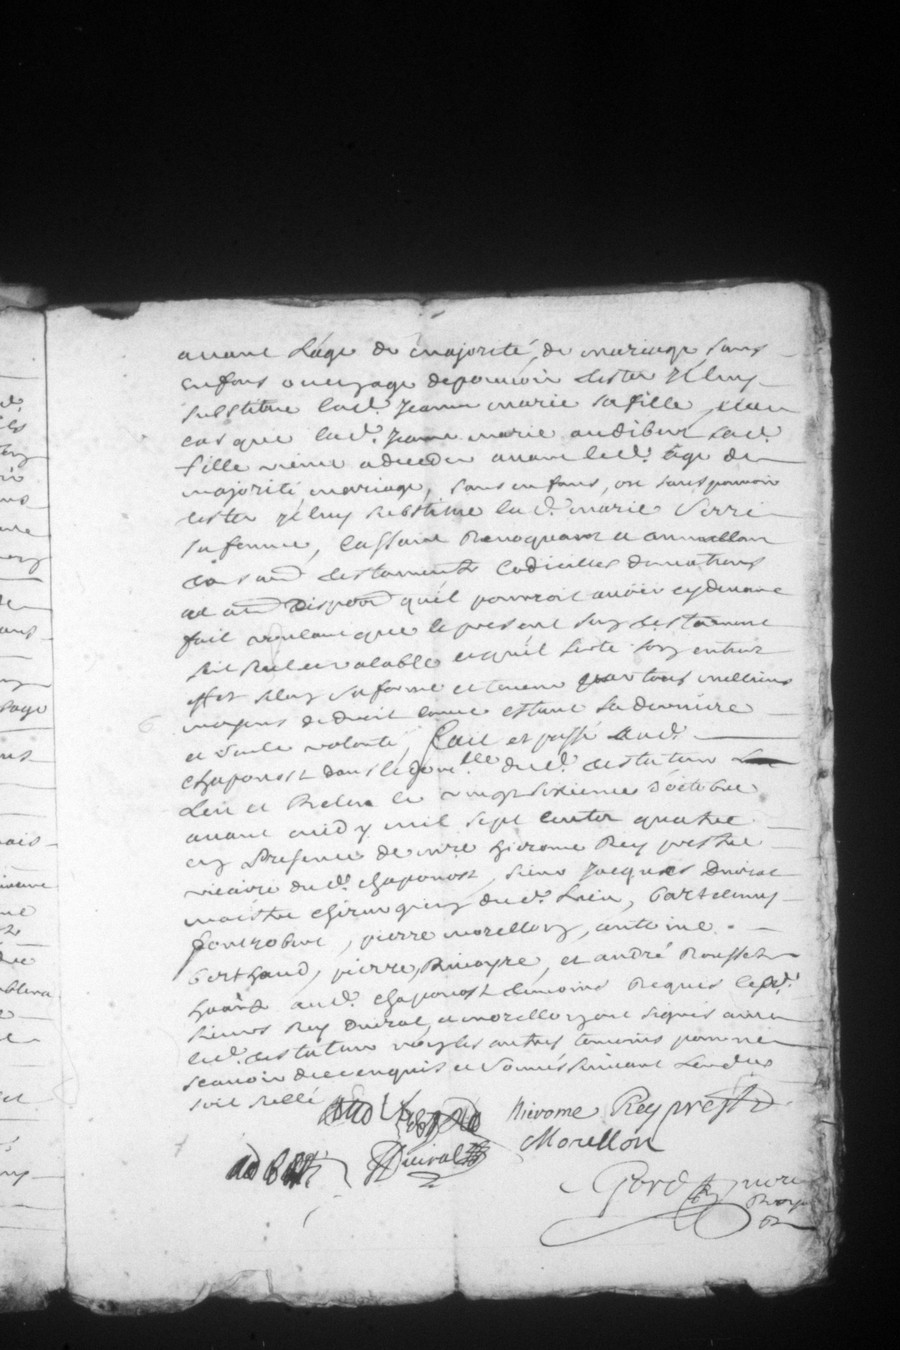 avant l'age de majorité, de mariage sans
enfans ou en aage de pouvoir tester Il luy
substitue lad. Jeanne marie sa fille et au
cas que lad. Jeanne marie audibert sad.
fille vienne a deceder avant led. age de
majorité mariage, sans enfans, ou sans pouvoir
tester Il luy substitue lad. marie Serre
sa femme, Cassant Revoquant et annullant
tous aud testaments Codicilles donnations
et aud dispon quil pourroit avoir cy devant
fait voulant que le present soy testament
soit seul valable et quil sorte son entier
effet selon sa forme et teneur par tous meilleurs
moyens de droit comme estant sa derniere
et seule volonté, fait et passé aud.
chaponost dans le domlle dud. testateur
Leu et Relleu le vingt sixieme d'octobre
avant midy mil sept cents quatre
en presence de mre hierome Rey prestre
vicaire dud. chaponost, sieur Jacques Duviral
maistre chirurgien dud. Lieu, bartelemy
fontrobert, pierre morellon, antoine
berthaud, pierre Rivoyre, et andré Rousset
hants aud. chaponost temoins Requis lesd.
sieurs Rey Duviral, et morellon ont signés avec
led. testateur non les autres temoins pour ne
scavoir de ce enquis et sommés suivant Lordre
soit sellé
hierome Rey prestre
Morellon
Duviral
Gord